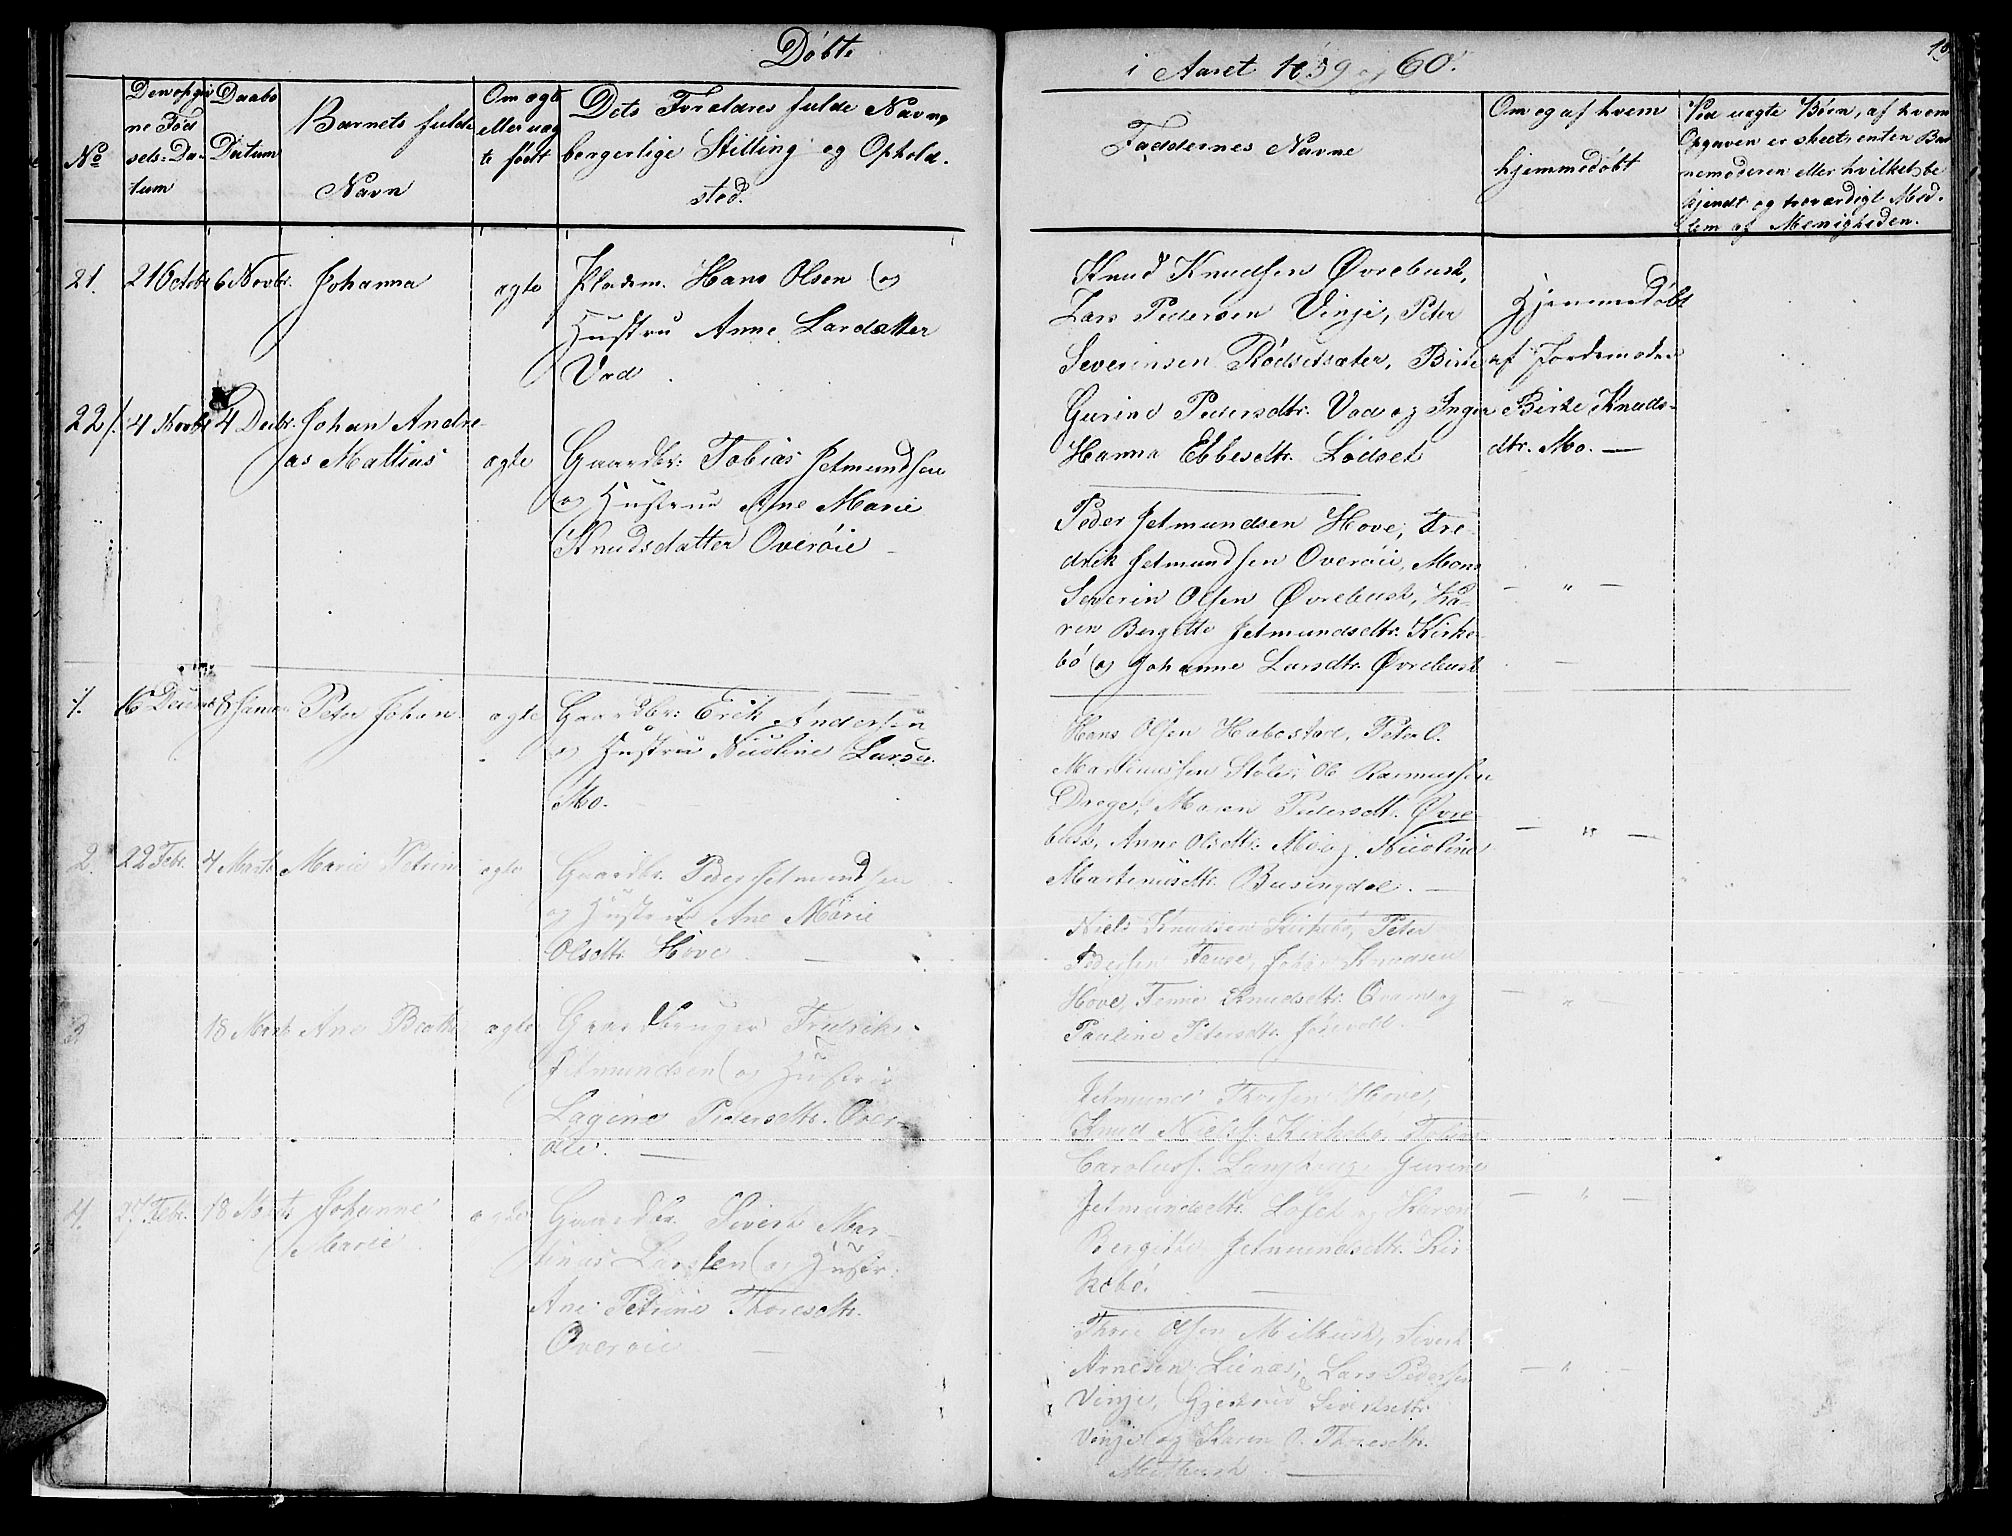 Døbte
i Aaret 1859 og 60.
No
Den opgi
ne Fød
sels-Da-
tum
Daabs
Datum
Barnets fulde
Navn
Om ægte
eller uæg
te født
Dets Forældres fulde Navn,
borgerlige Stilling og Ophold.
sted.
Faddernes Navne
Om og af hvem
hjemmedøbt
Ved uægte Børn, af hvem
Opgaven er skeet, enten Bar
nemoderen eller hvilket be
kjendt og troværdigt Med-
lem af Menigheden.
21. 21 Octbr 6 Novbr. Johanna ægte Pladsm. Hans Olsen og
Hustru Anne Larsdatter
Vad
Knud Knudsen Øvrebust,
Lars Pedersen Vinje, Peter
Severinsen Rødsetsæter, Birte
Gurine Pedersdtr. Vad og Inger
Hanna Ebbesdtr. Lødset
Hjemmedøbt
af Jordemoder
Birte Knuds-
dtr. Mo. —
22 4 Novbr 4 Decbr. Johan Andre-
as Mattius ægte Gaardbr: Tobias Jetmundsen
og Hustrue Ane Marie
Knudsdatter Overøie —
Peder Jetmundsen Hove, Fre-
drik Jetmundsen Overøie, Mons
Severin Olsen Øvrebust, Ka-
ren Bergitte Jetmundsdtr. Kirke-
bø og Johanne Larsdtr. Øvrebust
— " —
1. 16 Decemb 8 Januar Peter Johan ægte Gaardbr: Erik Andersen
og Hustrue Nicoline Larsd.
Mo.
Hans Olsen Habostad, Peter O.
Martinussen Støle, Ole Rasmussen
Drege, Maren Pedersdt. Øvre-
bust, Anne Olsdtr. Mo og Nicoline
Martinusdtr. Busingdal. —
— " —
2. 22 Febr. 4 Marts Marie Petrine ægte Gaardbr. Peder Jetmundsen
og Hustrue Ane Marie
Olsdtr. Hove —
Niels Knudsen Kirkebø, Peter
Pedersen Knudsen
Hove, Knudsdtr. og
Pauline Petersdtr.
— " —
3 18 Marts Ane Beathe ægte Gaardbruger Fredrik
Jetmundsen og Hustrue
Lagine Pedersdtr. Over-
øie. —
Jetmund Hove,
Knud Nielss. Kirkebø,
Carolus. Gurine
Jetmundsdtr. Løset og Karen
Bergitte Jetmundsdtr. Kir-
kebø. —
— " —
4. 27 Febr. 18 Marts Johanne
Marie ægte Gaardbr. Sivert Mar-
tinus Larssen og Hustr:
Ane Petrine Thoresdtr.
Overøie —
Thore Olsen Mitbust, Sivert
Arnesen Lienæs, Lars Pedersen
Vinje, Gjertrud Sivertsdtr.
Vinje og Karen O. Thoresdtr.
Mitbust. —
— " —